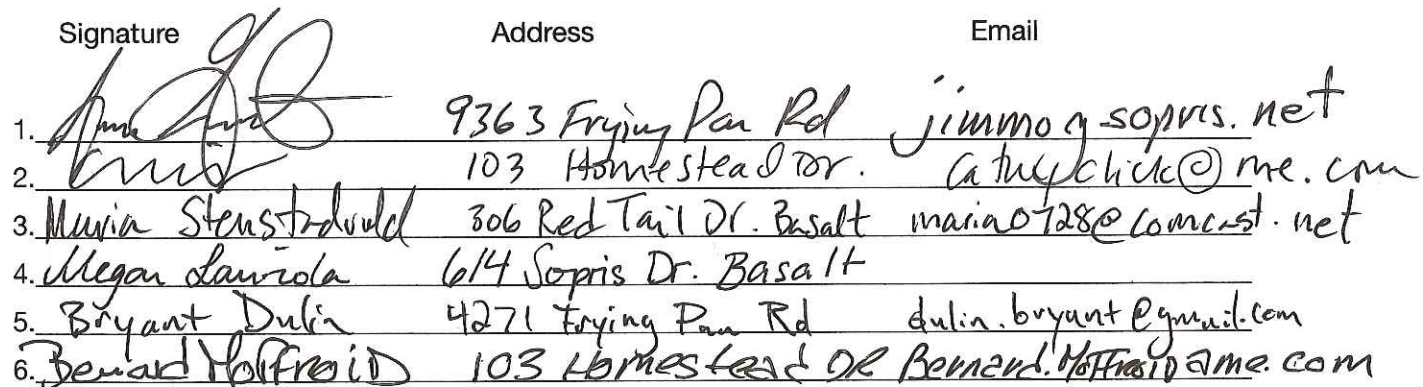 Signature Address Email
1. 9363 Frying Pan Rd sopris.net
2. 103 Homestead Dr. cathyclick@me.com
3. Maria 306 Red Tail Dr. Basalt maria0728@comcast.net
4. Megan Lauriola 614 Sopris Dr. Basalt
5. Bryant Dulin 4271 Frying Pan Rd dulin.bryant@gmail.com
6. Bernard Moffroid 103 Homestead DR Bernard.Moffroid@me.com